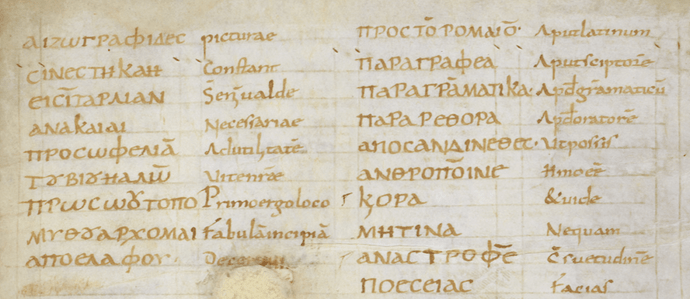 ΑΙΖΩΓΡΑΦΙΔΕC picturae
CΙΝΕCΤΗΚΑΗ Constant
ΕΙCΠΑΡΛΙΑΝ
ΑΝΑΚΑΙΑΙ Necessariae
ΠΡΟCΩΦΕΛΙᾹ Adutilitatē
ΤȢΒΙȢΗΑΛΩ̄ Uitenrāe
ΠΡΩCΩȢΤΟΠΟ Primoergoloco
ΜΥΘȢΑΡΧΟΜΑΙ Fabulāincipiā
ΑΠΟΕΛΑΦΟΥ
ΠΡΟCΤΟ̄ΡΟΜΑΙΟ̄· Aputlatinum
ΠΑΡΑΓΡΑΦΕΑ Aputscriptorē
ΠΑΡΑΓΡᾹΜΑΤΙΚΑ· Apđgrāmaticū
ΠΑΡΑΡΕΘΟΡΑ Apđoratorē
ΑΠΟCΑΝΔΙΝΕΘΕC· Utpossis
ΑΝΘΡΟΠΟ̄ΙΝΕ
ΚΟΡΑ &uide
ΜΗΤΙΝΑ Nequam
ΑΝΑCΤΡΟΦΕ̄ C̄suetudinē
ΠΟΕCΕΙΑC Facias